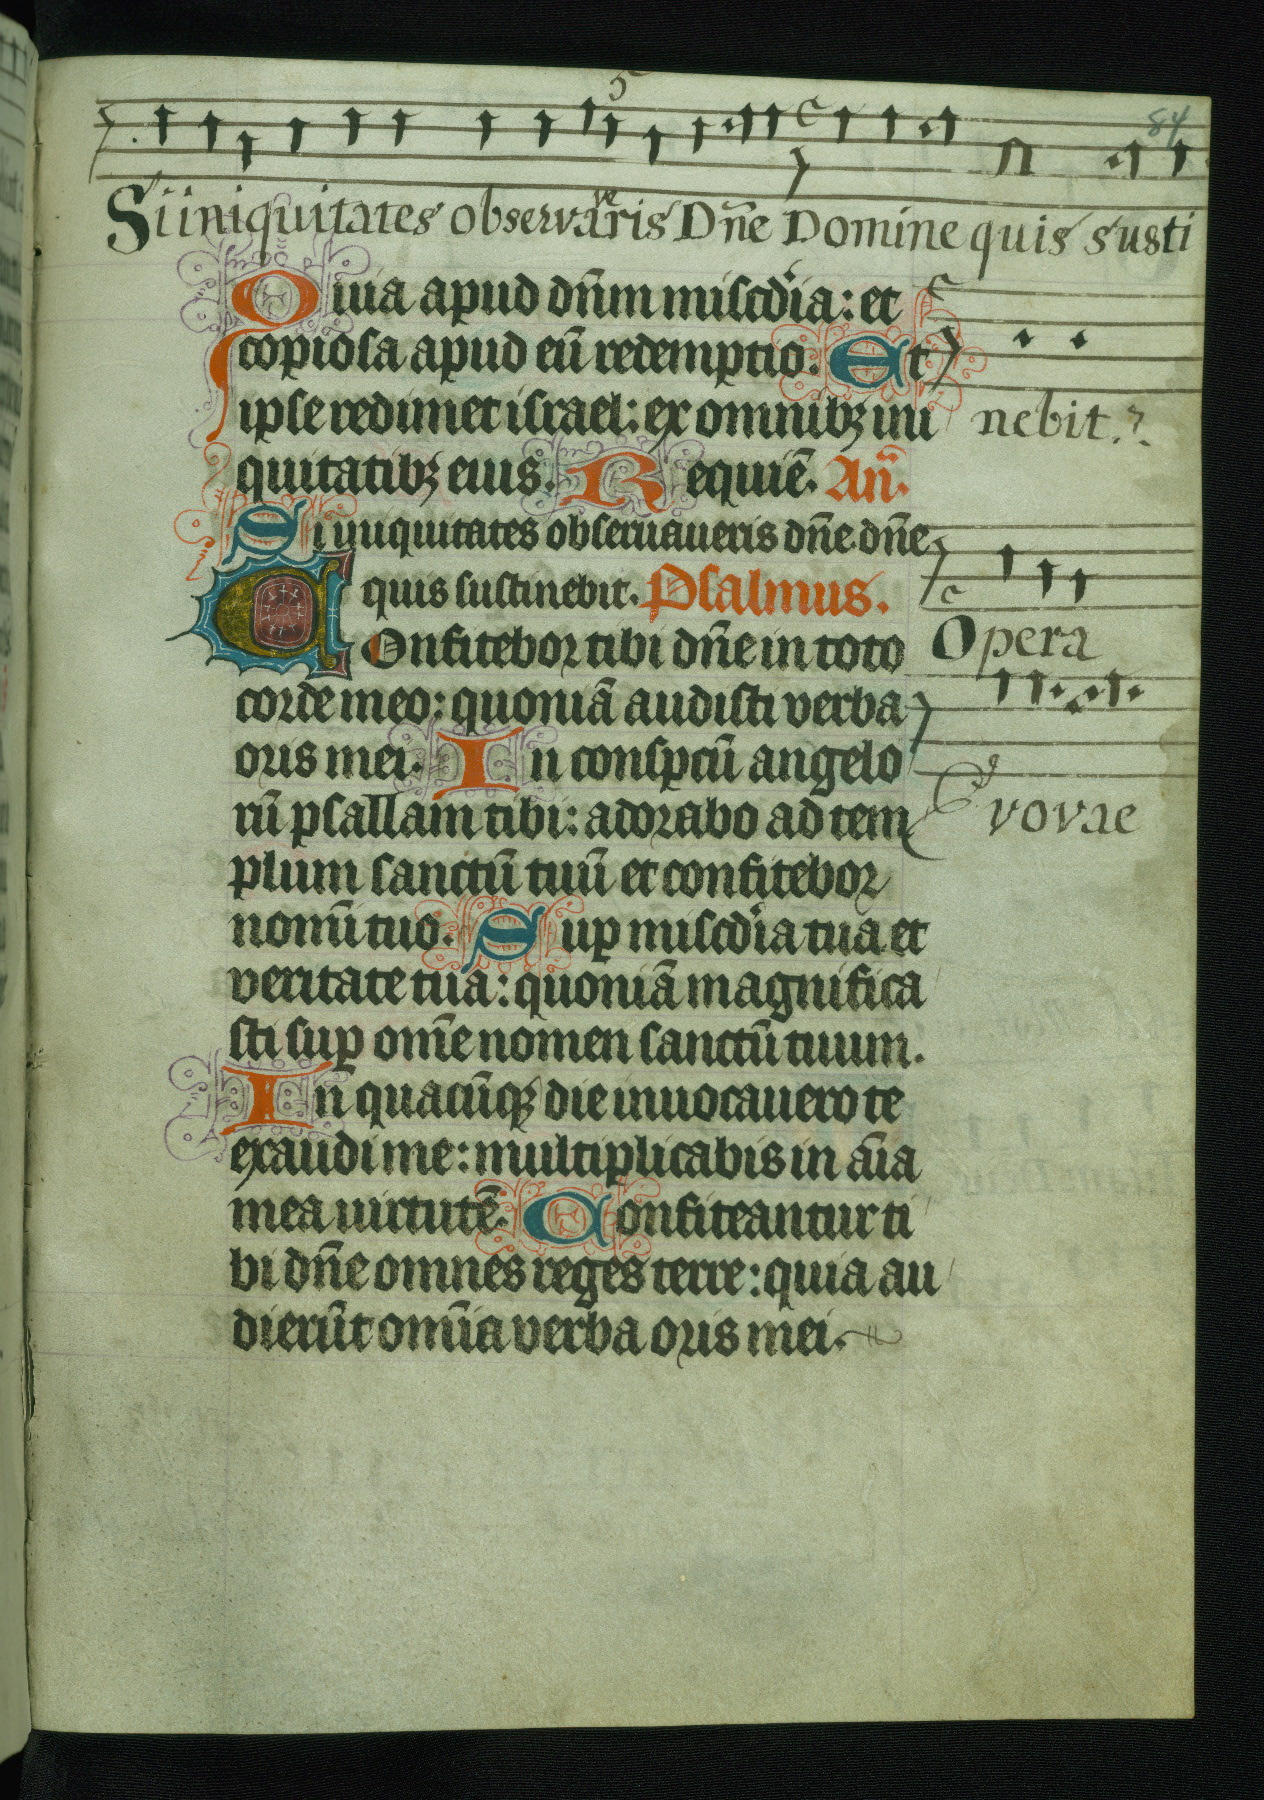 84
5
Si iniquitates observaris Dñe Domine quis susti
ve
nebit.
Quia apud dñm miscdia: et
copiosa apud eũ redemptio. Et
ipse redimet israel: ex omnibꝫ ini
quitatibꝫ eius. Requiẽ. Añ.
Si iniquitates obseruaueris dñe dñe
quis sustinebit. Psalmus.
Confitebor tibi dñe in toto
corde meo: quoniã audisti verba
oris mei. In conspcũ angelo
rũ psallam tibi: adorabo ad tem
plum sanctũ tuũ et confitebor
nomĩ tuo. Suꝑ miscdia tua et
veritate tua: quoniã magnifica
sti suꝑ om̃e nomen sanctũ tuum.
In quacũqꝫ die inuocauero te
exaudi me: multiplicabis in ãia
mea uirtutẽ. Confiteantur ti
bi dñe omnes reges terre: quia au
dierũt om̃ia verba oris mei.
Opera
Evovae